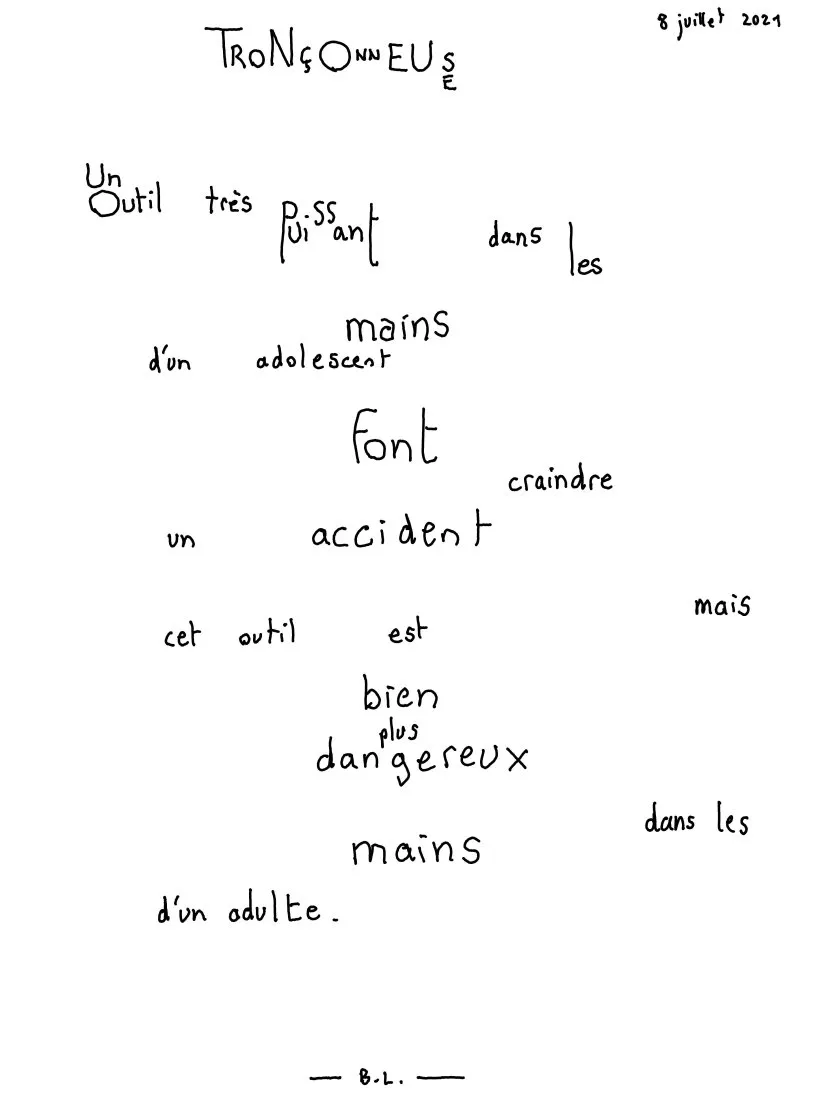 8 juillet 2021
TRoNçONNEUSE
Un
Outil très puissant dans les
mains
d'un adolescent
font
craindre
un accident
mais
cet outil est
bien
plus
dangereux
dans les
mains
d'un adulte.
— B.L. —